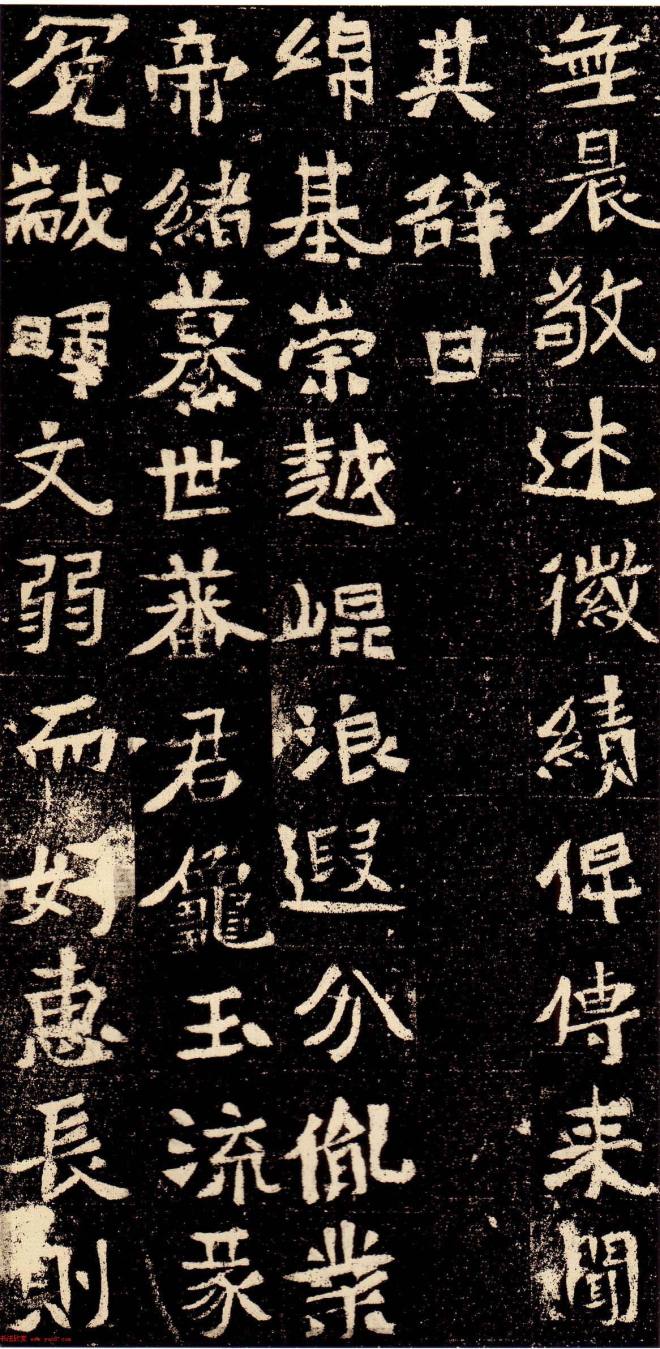 無晨敬述徽績俾傳来聞
其辞曰
綿基崇越崐浪遐分胤業
帝緒慕世蕃君龜玉流彖
冕黻暉文弱而好惠長則